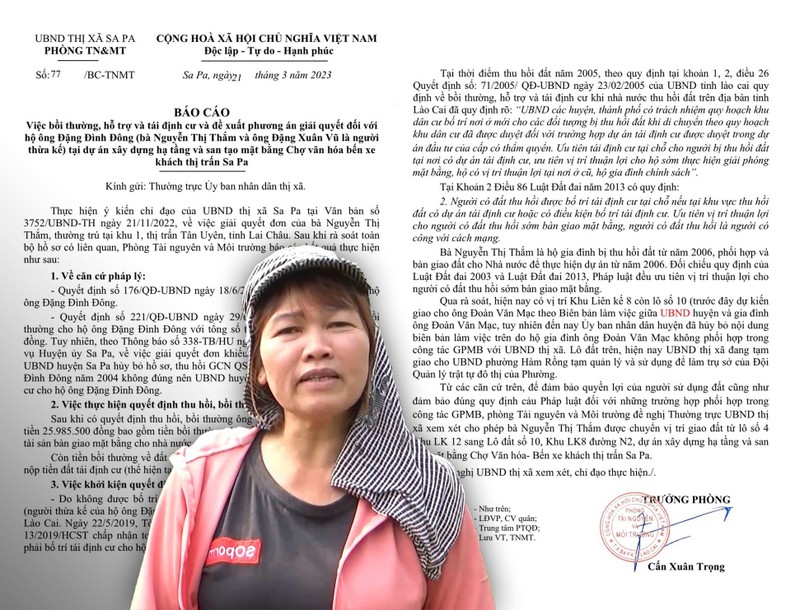 UBND THỊ XÃ SA PA
PHÒNG TN&MT
CỘNG HOÀ XÃ HỘI CHỦ NGHĨA VIỆT NAM
Độc lập - Tự do - Hạnh phúc
Số:77 /BC-TNMT
Sa Pa, ngày21 tháng 3 năm 2023
BÁO CÁO
Việc bồi thường, hỗ trợ và tái định cư và đề xuất phương án giải quyết đối với
hộ ông Đặng Đình Đông (bà Nguyễn Thị Thắm và ông Đặng Xuân Vũ là người
thừa kế) tại dự án xây dựng hạ tầng và san tạo mặt bằng Chợ văn hóa bến xe
khách thị trấn Sa Pa
Kính gửi: Thường trực Ủy ban nhân dân thị xã.
Thực hiện ý kiến chỉ đạo của UBND thị xã Sa Pa tại Văn bản số
3752/UBND-TH ngày 21/11/2022, về việc giải quyết đơn của bà Nguyễn Thị
Thắm, thường trú tại khu 1, thị trấn Tân Uyên, tỉnh Lai Châu. Sau khi rà soát toàn
bộ hồ sơ có liên quan, Phòng Tài nguyên và Môi trường báo kết quả thực hiện
như sau:
1. Về căn cứ pháp lý:
- Quyết định số 176/QĐ-UBND ngày 18/6/2 hộ
ông Đặng Đình Đông.
- Quyết định số 221/QĐ-UBND ngày 29/ bồi
thường cho hộ ông Đặng Đình Đông với tổng số t
đồng. Tuy nhiên, theo Thông báo số 338-TB/HU ng
vụ Huyện ủy Sa Pa, về việc giải quyết đơn khiếu
UBND huyện Sa Pa hủy bỏ hồ sơ, thu hồi GCN QS
Đình Đông năm 2004 không đúng nên UBND huyện
cư cho hộ ông Đặng Đình Đông.
2. Việc thực hiện quyết định thu hồi, bồi th
Sau khi có quyết định thu hồi, bồi thường ông
tiền 25.985.500 đồng bao gồm tiền bồi thường
tài sản bàn giao mặt bằng cho nhà nước
Còn tiền bồi thường về đất
nộp tiền đất tái định cư (thể hiện tạ
3. Việc khởi kiện quyết đ
- Do không được bố trí
(người thừa kế của hộ ông Đặng
Lào Cai. Ngày 22/5/2019, Tò
13/2019/HCST chấp nhận to
phải bố trí tái định cư cho hộ
Tại thời điểm thu hồi đất năm 2005, theo quy định tại khoản 1, 2, điều 26
Quyết định số: 71/2005/ QĐ-UBND ngày 23/02/2005 của UBND tỉnh lào cai quy
định về bồi thường, hỗ trợ và tái định cư khi nhà nước thu hồi đất trên địa bàn tỉnh
Lào Cai đã quy định rõ: “UBND các huyện, thành phố có trách nhiệm quy hoạch khu
dân cư bố trí nơi ở mới cho các đối tượng bị thu hồi đất khi di chuyển theo quy hoạch
khu dân cư đã được duyệt đối với trường hợp dự án tái định cư được duyệt trong dự
án đầu tư của cấp có thẩm quyền. Ưu tiên tái định cư tại chỗ cho người bị thu hồi đất
tại nơi có dự án tái định cư, ưu tiên vị trí thuận lợi cho hộ sớm thực hiện giải phóng
mặt bằng, hộ có vị trí thuận lợi tại nơi ở cũ, hộ gia đình chính sách”.
Tại Khoản 2 Điều 86 Luật Đất đai năm 2013 có quy định:
2. Người có đất thu hồi được bố trí tái định cư tại chỗ nếu tại khu vực thu hồi
đất có dự án tái định cư hoặc có điều kiện bố trí tái định cư. Ưu tiên vị trí thuận lợi
cho người có đất thu hồi sớm bàn giao mặt bằng, người có đất thu hồi là người có
công với cách mạng.
Bà Nguyễn Thị Thắm là hộ gia đình bị thu hồi đất từ năm 2006, phối hợp và
bàn giao đất cho Nhà nước để thực hiện dự án từ năm 2006. Đối chiếu quy định của
Luật Đất đai 2003 và Luật Đất đai 2013, Pháp luật đều ưu tiên vị trí thuận lợi cho
người có đất thu hồi sớm bàn giao mặt bằng.
Qua rà soát, hiện nay có vị trí Khu Liên kế 8 còn lô số 10 (trước đây dự kiến
giao cho ông Đoàn Văn Mạc theo Biên bản làm việc giữa UBND huyện và gia đình
ông Đoàn Văn Mạc, tuy nhiên đến nay Ủy ban nhân dân huyện đã hủy bỏ nội dung
biên bản làm việc trên do hộ gia đình ông Đoàn Văn Mạc không phối hợp trong
công tác GPMB với UBND thị xã. Lô đất trên, hiện nay UBND thị xã đang tạm
giao cho UBND phường Hàm Rồng tạm quản lý và sử dụng để làm trụ sở của Đội
Quản lý trật tự đô thị của Phường.
Từ các căn cứ trên, để đảm bảo quyền lợi của người sử dụng đất cũng như
đảm bảo đúng quy định cảu Pháp luật đối với những trường hợp phối hợp trong
công tác GPMB, phòng Tài nguyên và Môi trường đề nghị Thường trực UBND thị
xã xem xét cho phép bà Nguyễn Thị Thắm được chuyển vị trí giao đất từ lô số 4
Khu LK 12 sang Lô đất số 10, Khu LK8 đường N2, dự án xây dựng hạ tầng và san
mặt bằng Chợ Văn hóa- Bến xe khách thị trấn Sa Pa.
nghị UBND thị xã xem xét, chỉ đạo thực hiện./.
- Như trên;
- LĐVP, CV quân;
- Trung tâm PTQĐ;
- Lưu VT, TNMT.
TRƯỞNG PHÒNG
PHÒNG
TÀI NGUYÊN
VÀ
MÔI TRƯỜNG
Cấn Xuân Trọng